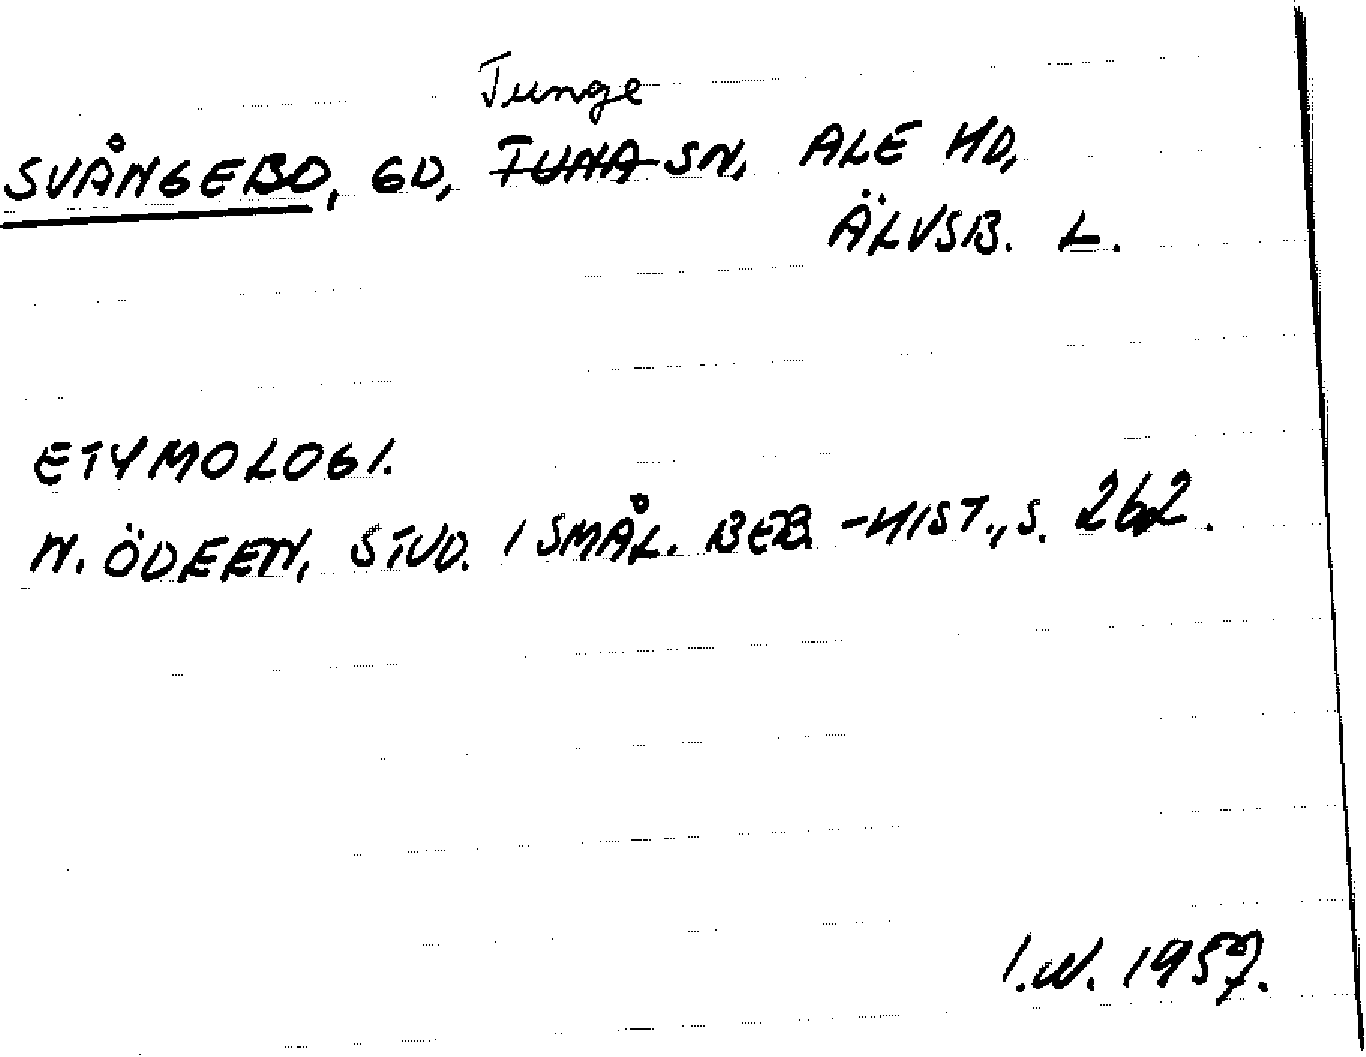 Tunge
SVÅNGEBO, GD, TUNA SN, ALE HD,
ÄLVSB. L.
ETYMOLOGI.
N. ÖDEEN, STUD. I SMÅL. BEB.-HIST., S. 262.
I.W. 1957.